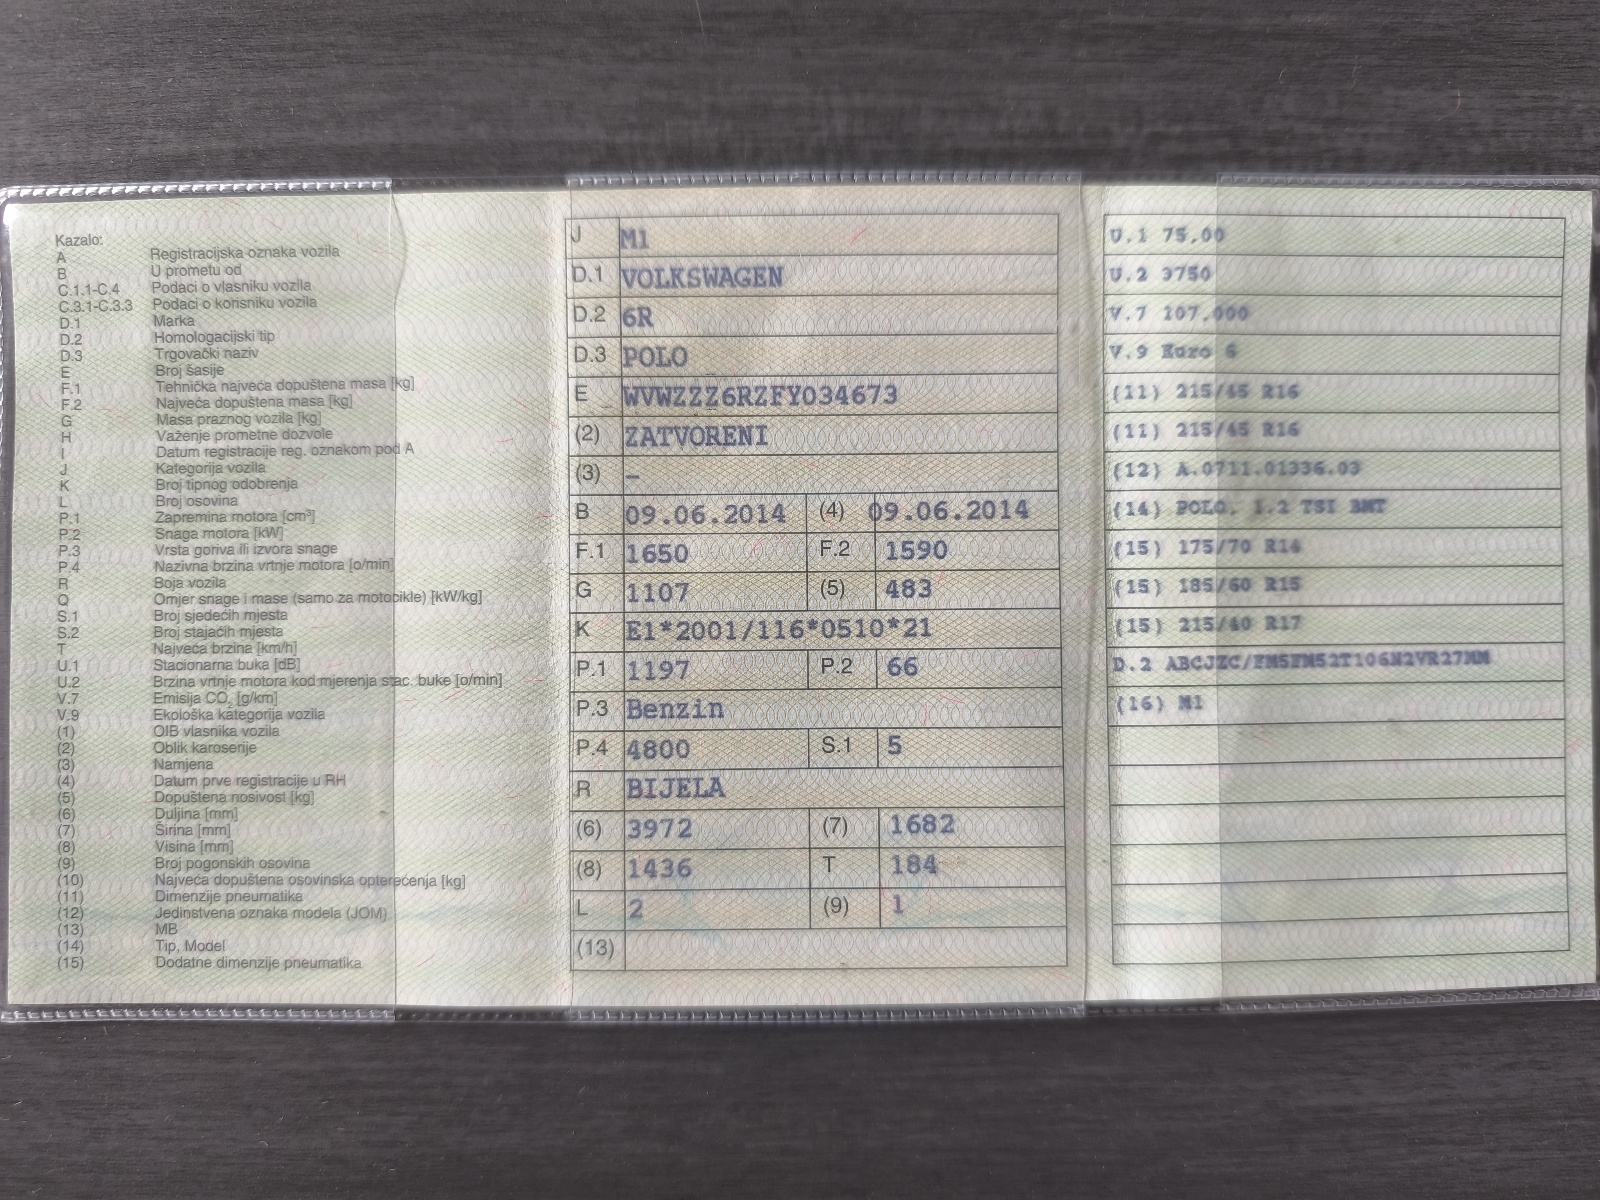 Kazalo:
A Registracijska oznaka vozila
B U prometu od
C.1.1-C.4 Podaci o vlasniku vozila
C.3.1-C.3.3 Podaci o korisniku vozila
D.1 Marka
D.2 Homologacijski tip
D.3 Trgovački naziv
E Broj šasije
F.1 Tehnička najveća dopuštena masa [kg]
F.2 Najveća dopuštena masa [kg]
G Masa praznog vozila [kg]
H Važenje prometne dozvole
I Datum registracije reg. oznakom pod A
J Kategorija vozila
K Broj tipnog odobrenja
L Broj osovina
P.1 Zapremina motora [cm³]
P.2 Snaga motora [kW]
P.3 Vrsta goriva ili izvora snage
P.4 Nazivna brzina vrtnje motora [o/min]
R Boja vozila
Q Omjer snage i mase (samo za motocikle) [kW/kg]
S.1 Broj sjedećih mjesta
S.2 Broj stajaćih mjesta
T Najveća brzina [km/h]
U.1 Stacionarna buka [dB]
U.2 Brzina vrtnje motora kod mjerenja stac. buke [o/min]
V.7 Emisija CO₂ [g/km]
V.9 Ekološka kategorija vozila
(1) OIB vlasnika vozila
(2) Oblik karoserije
(3) Namjena
(4) Datum prve registracije u RH
(5) Dopuštena nosivost [kg]
(6) Duljina [mm]
(7) Širina [mm]
(8) Visina [mm]
(9) Broj pogonskih osovina
(10) Najveća dopuštena osovinska opterećenja [kg]
(11) Dimenzije pneumatika
(12) Jedinstvena oznaka modela (JOM)
(13) MB
(14) Tip, Model
(15) Dodatne dimenzije pneumatika
J M1
D.1 VOLKSWAGEN
D.2 6R
D.3 POLO
E WVWZZZ6RZFY034673
(2) ZATVORENI
(3) –
B 09.06.2014 (4) 09.06.2014
F.1 1650 F.2 1590
G 1107 (5) 483
K E1*2001/116*0510*21
P.1 1197 P.2 66
P.3 Benzin
P.4 4800 S.1 5
R BIJELA
(6) 3972 (7) 1682
(8) 1436 T 184
L 2 (9) 1
(13)
U.1 75.00
U.2 3750
V.7 107.000
V.9 Euro 6
(11) 215/45 R16
(11) 215/45 R16
(12) A.0711.01336.03
(14) POLO, 1.2 TSI BMT
(15) 175/70 R14
(15) 185/60 R15
(15) 215/40 R17
D.2 ABCJZC/FM5FM52T106N2VR27MM
(16) M1